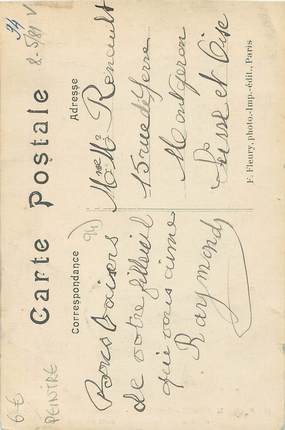 Carte Postale
Correspondance
Adresse
Bons baisers
de votre filleul
qui vous aime
Raymond
Mme Mr Renault
15 rue d'Yerre
Montgeron
Seine et Oise
F. Fleury, photo.-Imp.-édit., Paris
(94)
34
6€
PEINTRE